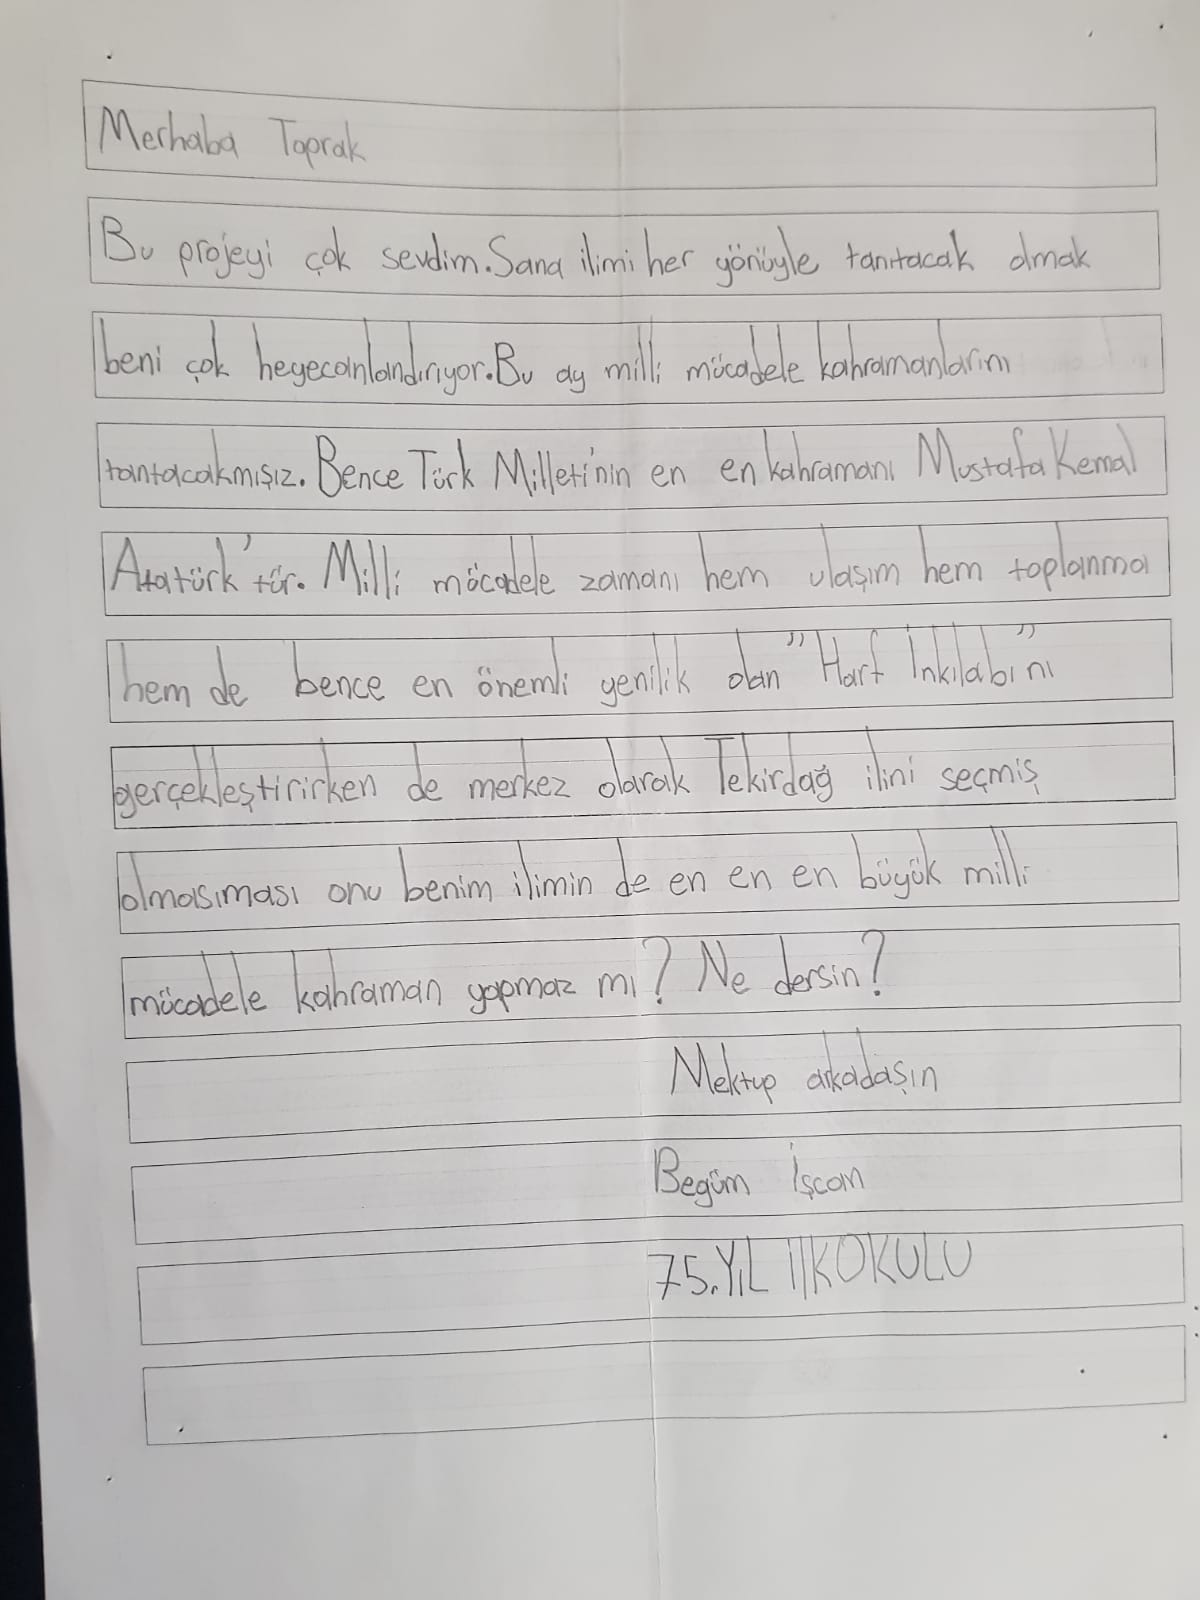 Merhaba Toprak
Bu projeyi çok sevdim. Sana ilimi her yönüyle tanıtacak olmak
beni çok heyecanlandırıyor. Bu ay milli mücadele kahramanlarını
tanıtacakmışız. Bence Türk Milleti'nin en en kahramanı Mustafa Kemal
Atatürk'tür. Milli mücadele zamanı hem ulaşım hem toplanma
hem de bence en önemli yenilik olan "Harf İnkılabı"nı
gerçekleştirirken de merkez olarak Tekirdağ ilini seçmiş
olmasıması onu benim ilimin de en en en büyük milli
mücadele kahraman yapmaz mı? Ne dersin?
Mektup arkadaşın
Begüm İşcan
75.YIL İlKOKULU